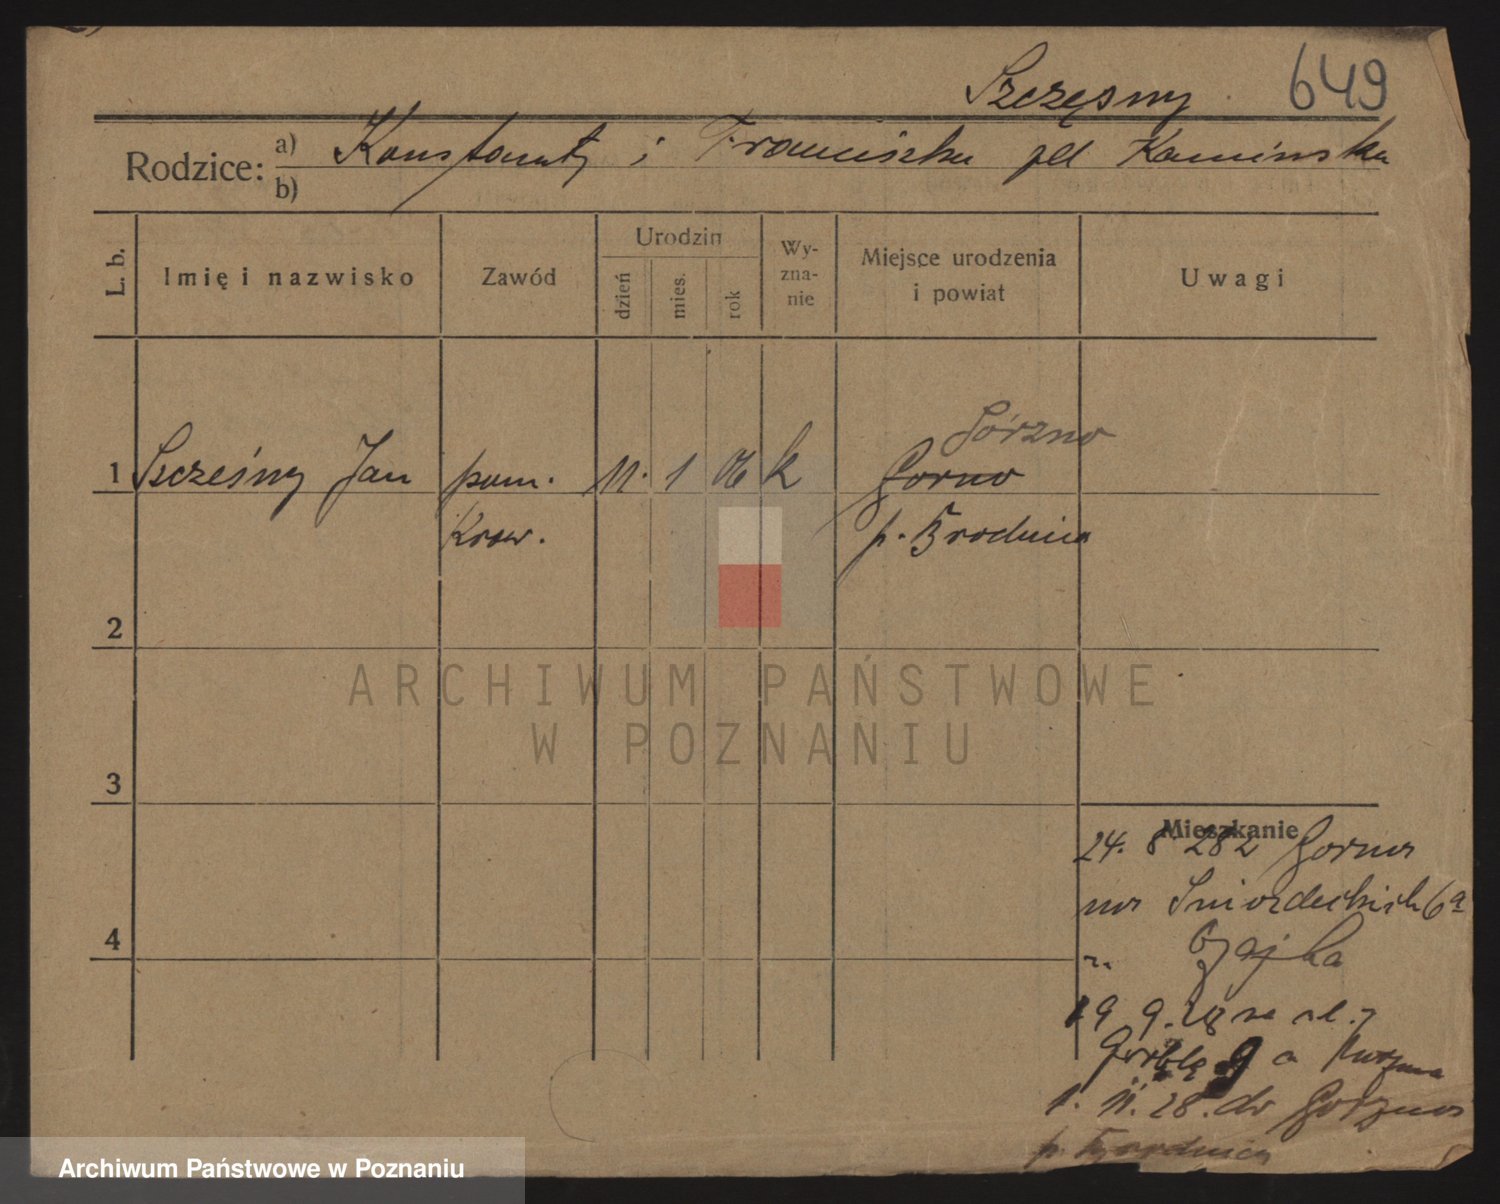 Szczęsny 649
Rodzice: a) Konstanty i Franciszka
b)
L. b. Imię i nazwisko Zawód Urodzin dzień mies. rok Wy-zna-nie Miejsce urodzenia i powiat Uwagi
Górzno
1 Szcześny Jan pom. 11. 1 06 k Gorno
Kraw. p. Brodnica
2
ARCHIWUM PAŃSTWOWE
W POZNANIU
3
Mieszkanie
24. 8 28 z Gorna
na Śniadeckich 6a
4 " Czajka
19 9. 28 na ul.
Groblę 9 a
1. 11. 28. do Gorzno
p. Brodnica
Archiwum Państwowe w Poznaniu